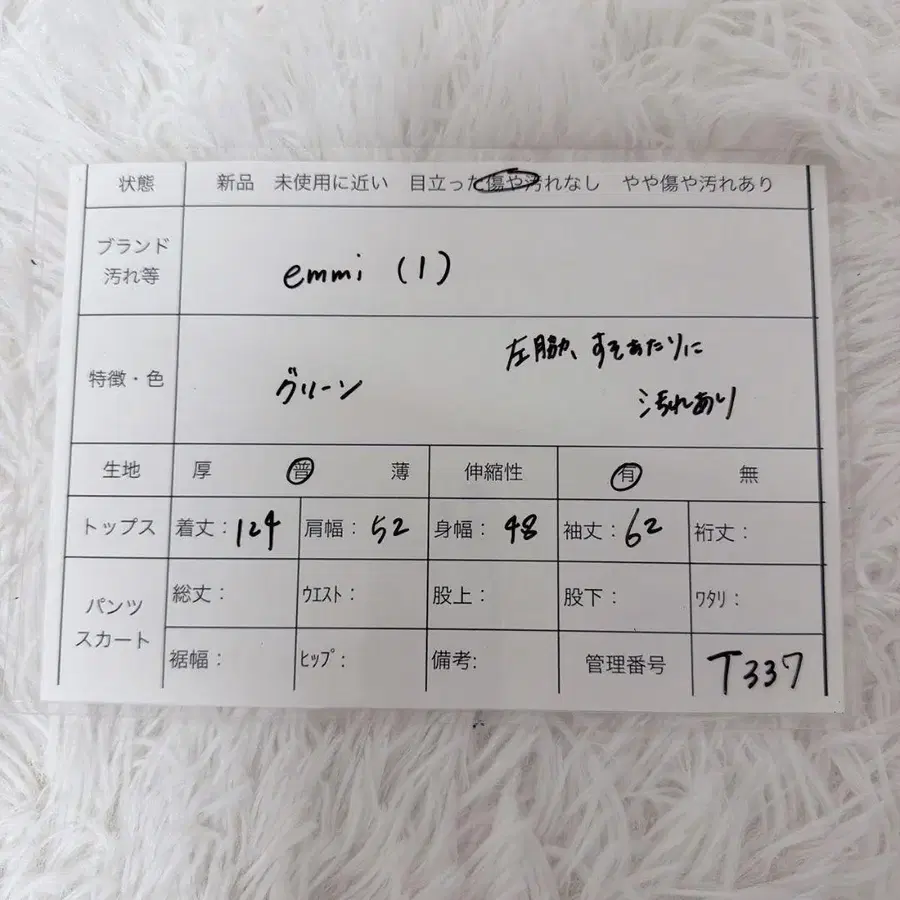 状態 新品 未使用に近い 目立った傷や汚れなし やや傷や汚れあり
ブランド
汚れ等
emmi (1)
特徴・色
グリーン
左脇、すそあたりに
汚れあり
生地 厚 普 薄 伸縮性 有 無
トップス 着丈：124 肩幅：52 身幅：48 袖丈：62 裄丈：
パンツ
スカート
総丈： ｳｴｽﾄ： 股上： 股下： ﾜﾀﾘ：
裾幅： ﾋｯﾌﾟ： 備考: 管理番号 T337